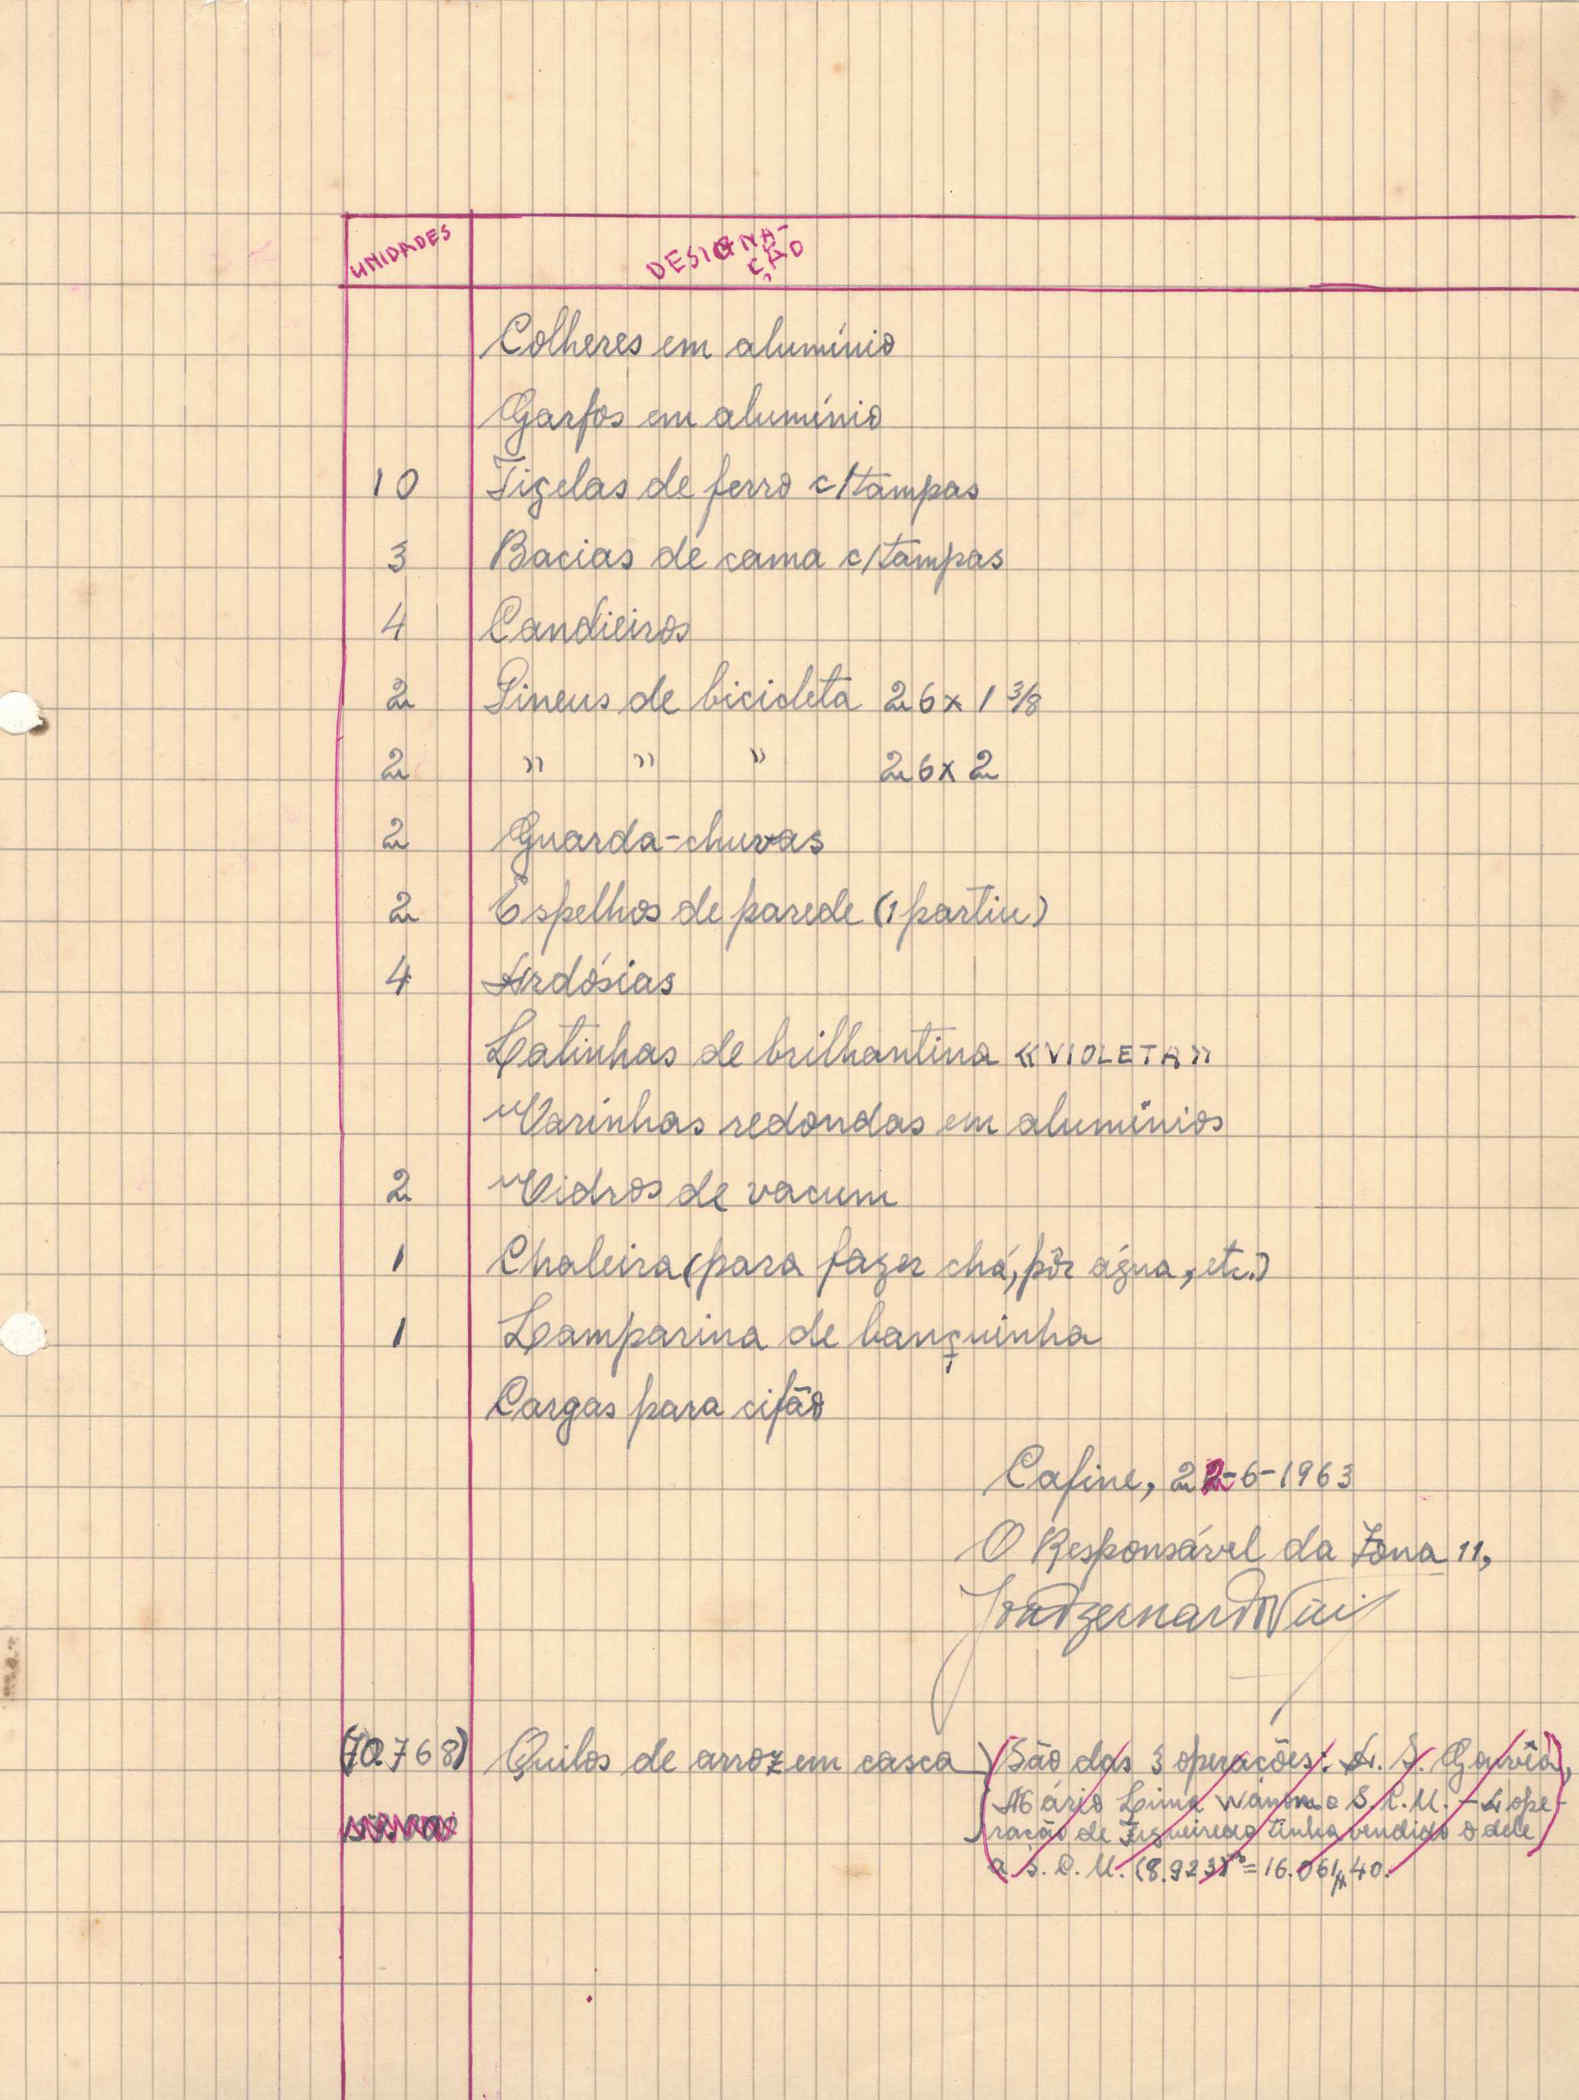 UNIDADES DESIGNA-
ÇÃO
Colheres em alumínio
Garfos em alumínio
10 Tigelas de ferro c/tampas
3 Bacias de cama c/tampas
4 Candieiros
2 Pineus de bicicleta 26 x 1 3/8
2 " " " 26 x 2
2 Guarda-chuvas
2 Espelhos de parede (1 partiu)
4 Ardósias
Latinhas de brilhantina «VIOLETA»
Varinhas redondas em alumínios
2 Vidros de vacum
1 Chaleira (para fazer chá, pôr água, etc.)
1 Lamparina de banquinha
Cargas para cifão
Cafine, 22-6-1963
O Responsável da Zona 11,
(70768) Quilos de arroz em casca (São das 3 operações: A. S. Gouvêa,
Mário Lima Wanon e S.C.U. - A ope-
ração de Figueiredo tinha vendido o dele
a S.C.U. (8.923) = 16.061$40.